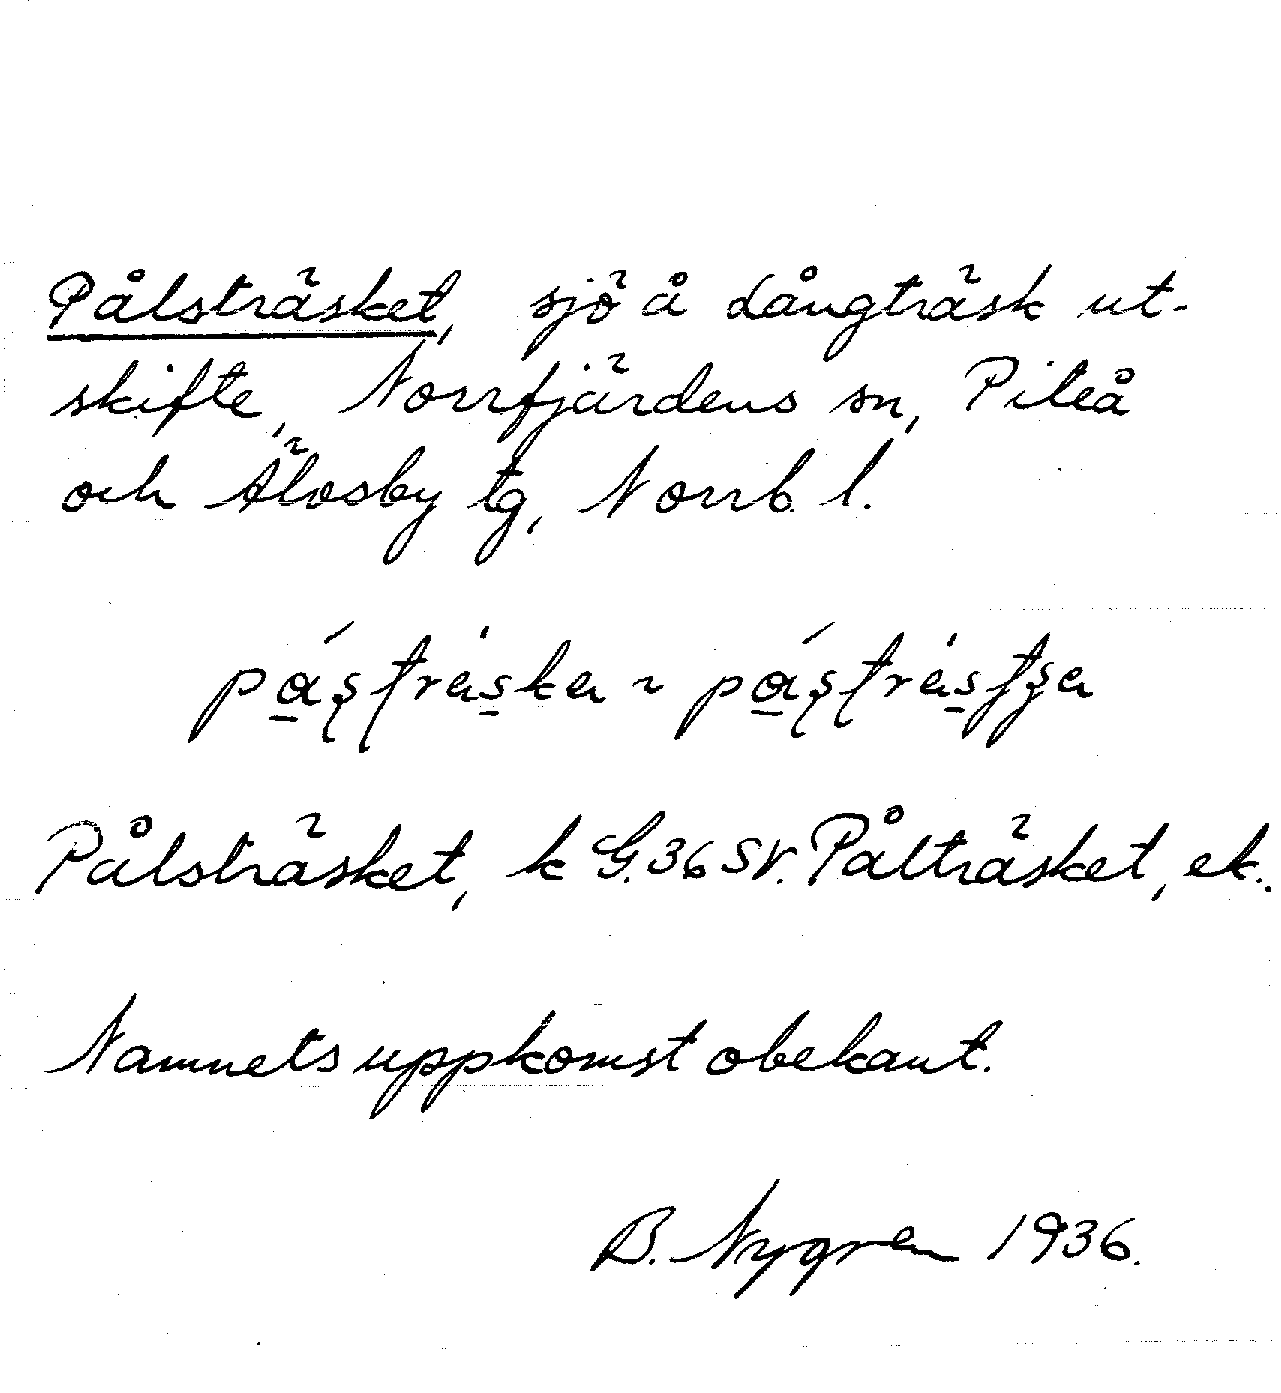 Pålsträsket, sjö å Långträsk ut-
skifte, Norrfjärdens sn, Piteå
och Älvsby tg, Norrb. l.
Pålsträsket, k G.36 SV. Pålträsket, ek.
Namnets uppkomst obekant.
B. Nygren 1936.